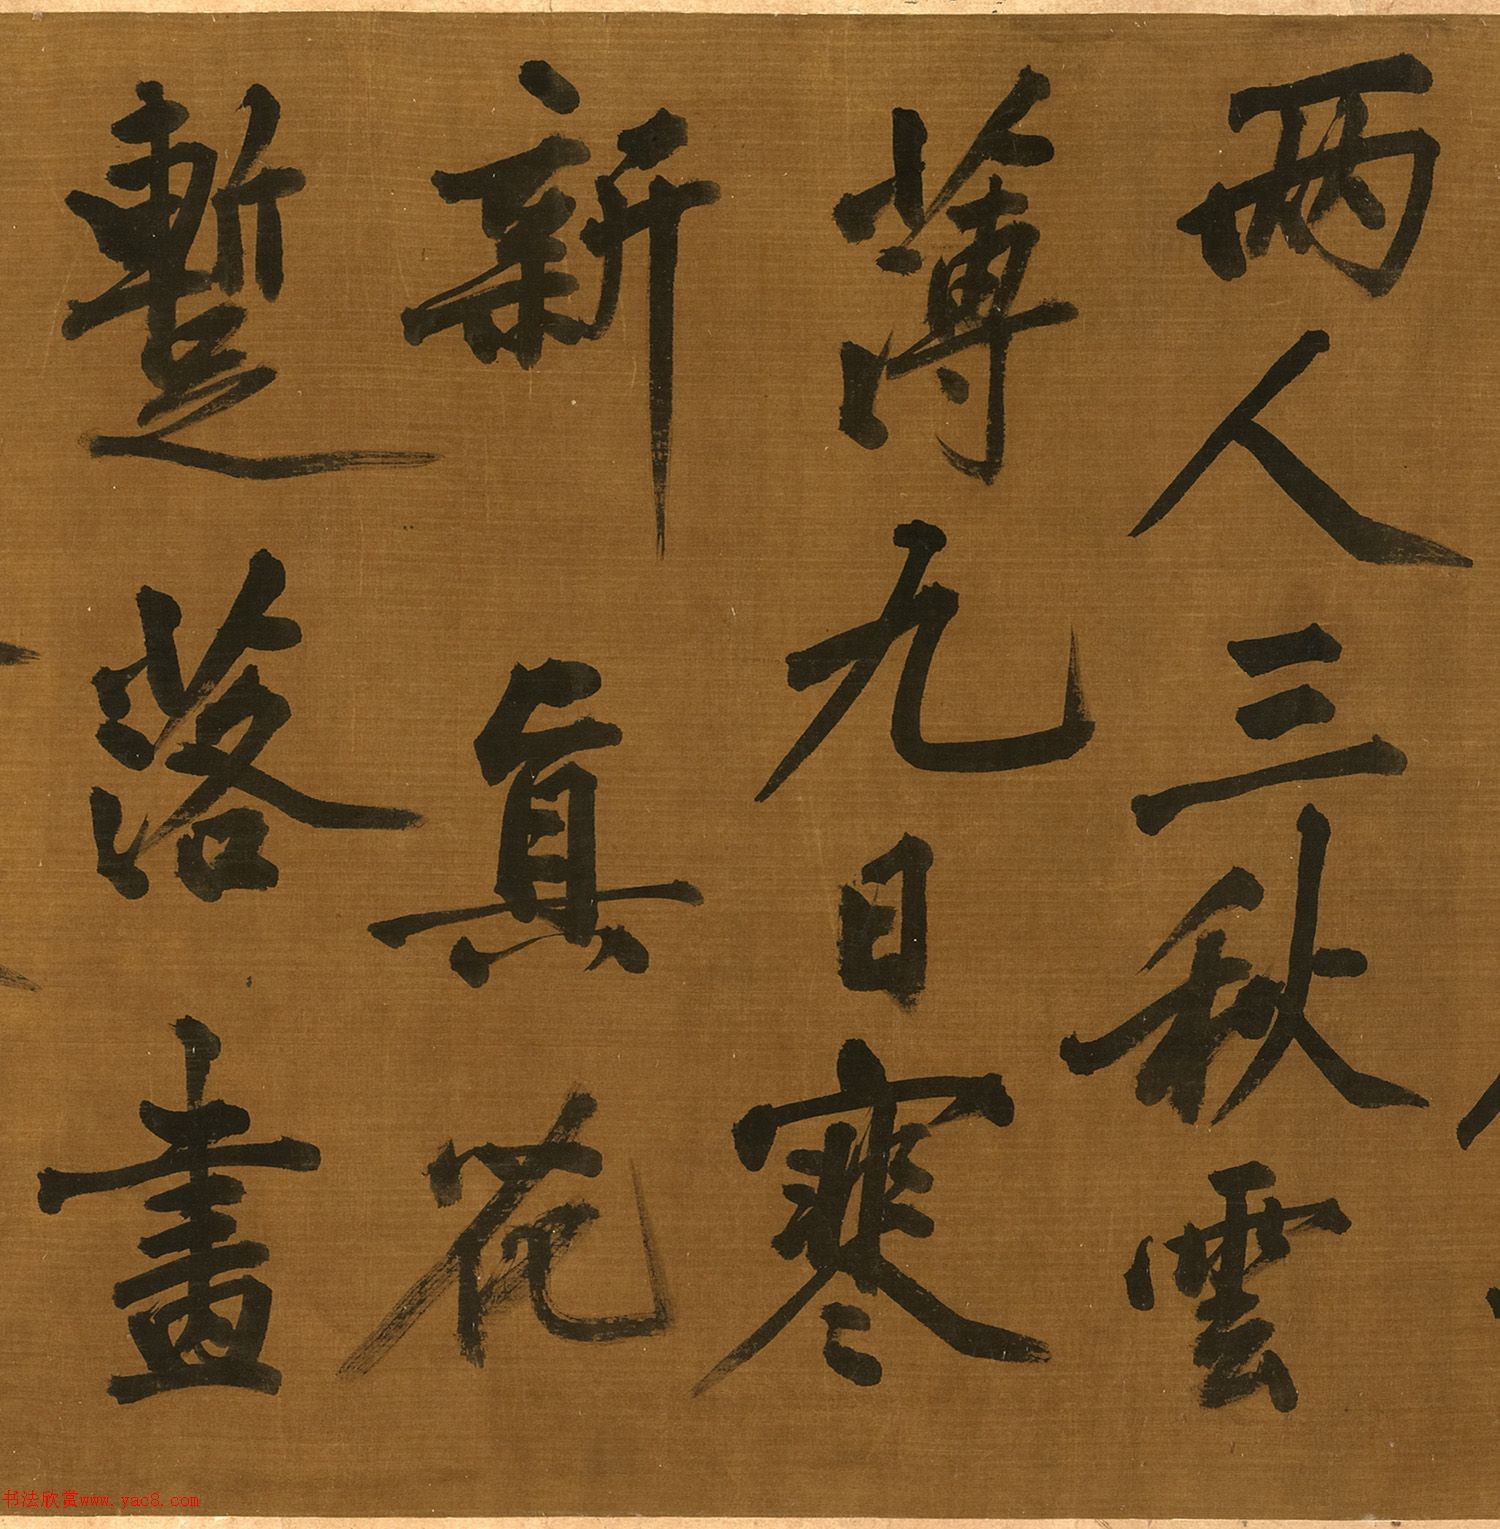 兩人三秋雲
薄九日寒
新真花
蹔落畫
书法欣赏www.yac8.com